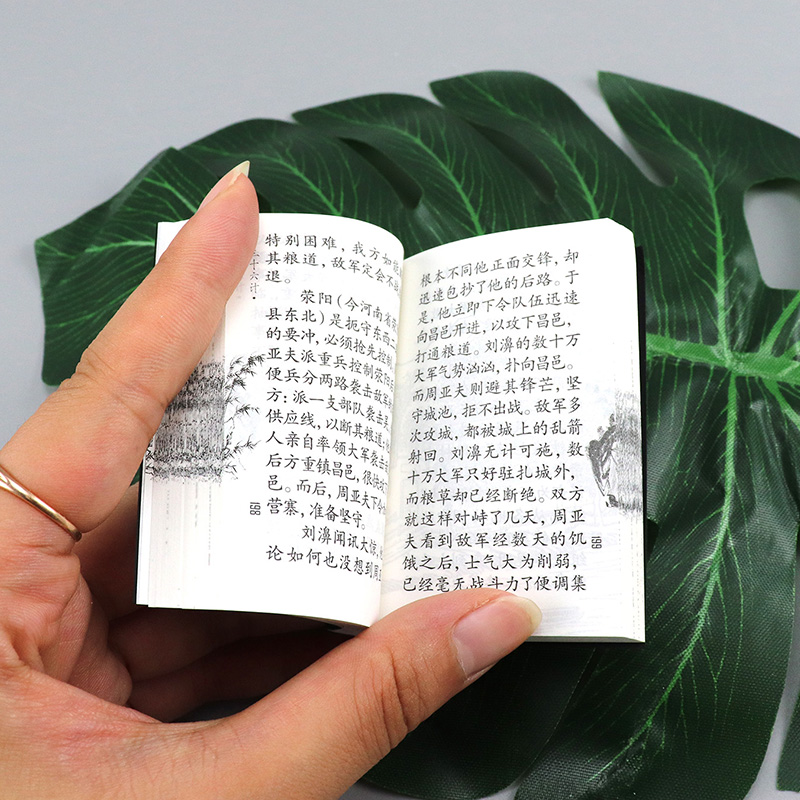 特别困难，我方如能
其粮道，敌军定会不
退。
荥阳（今河南省荥
县东北）是扼守东西二
的要冲，必须抢先控制
亚夫派重兵控制荥阳
便兵分两路袭击敌军
方：派一支部队袭击吴
供应线，以断其粮道；
人亲自率领大军袭击
后方重镇昌邑，很快
邑。而后，周亚夫下令
营寨，准备坚守。
刘濞闻讯大惊，
论如何也没想到周亚
十六计·
198
根本不同他正面交锋，却
迅速包抄了他的后路。于
是，他立即下令队伍迅速
向昌邑开进，以攻下昌邑，
打通粮道。刘濞的数十万
大军气势汹汹，扑向昌邑。
而周亚夫则避其锋芒，坚
守城池，拒不出战。敌军多
次攻城，都被城上的乱箭
射回。刘濞无计可施，数
十万大军只好驻扎城外，
而粮草却已经断绝。双方
就这样对峙了几天，周亚
夫看到敌军经数天的饥
饿之后，士气大为削弱，
已经毫无战斗力了便调集
199